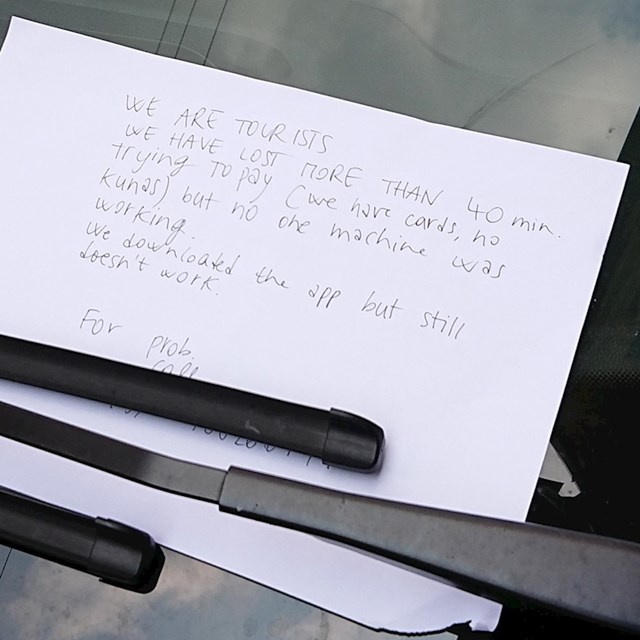 WE ARE TOURISTS
WE HAVE LOST MORE THAN 40 min.
trying to pay (we have cards, no
kunas) but no one machine was
working.
We downloaded the app but still
doesn't work.
For prob.
call